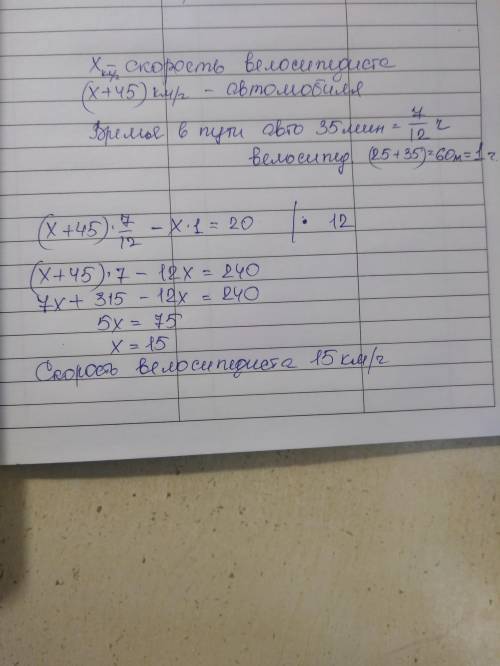 x км/ч - скорость велосипедиста
(x+45) км/ч - автомобиля
Время в пути авто 35 мин = 7/12 ч
велосипед (25+35)=60м=1ч.
(x+45)·7/12 - x·1 = 20 | · 12
(x+45)·7 - 12x = 240
7x + 315 - 12x = 240
5x = 75
x = 15
Скорость велосипедиста 15 км/ч